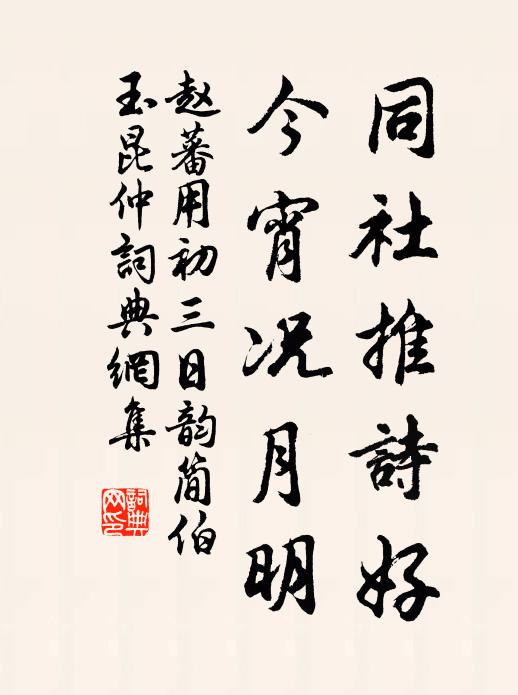 同社推詩好
今宵况月明
赵蕃用初三日韵简伯
玉昆仲詞典網集
詞典网印